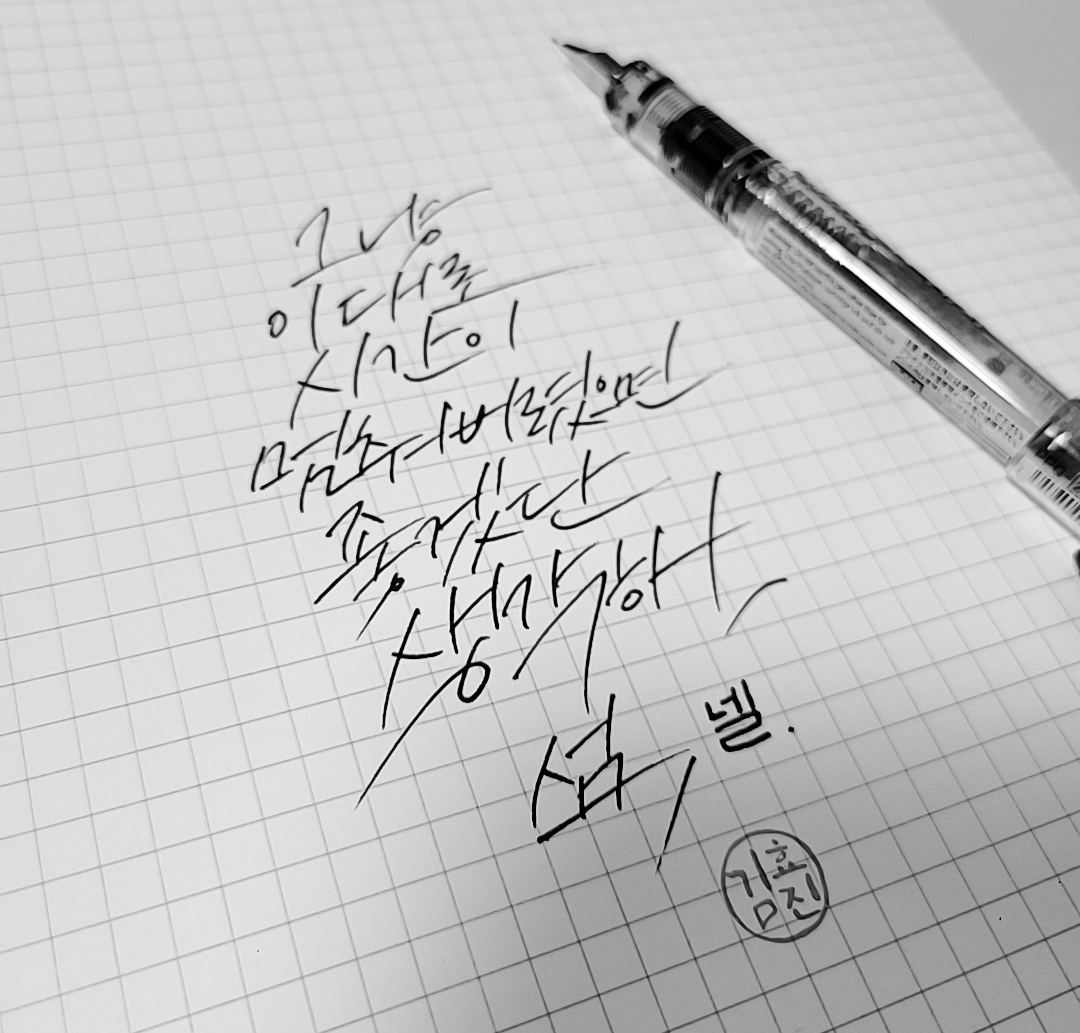 그냥
이대로
시간이
멈춰버렸으면
좋겠단
생각하나
섬, 넬.
김효진